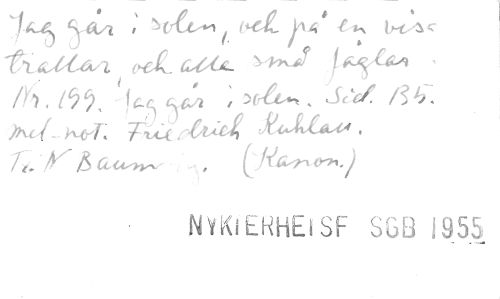 Jag går i solen, och på en visa
trallar, och alla små fåglar.
Nr. 199. Jag går i solen. Sid. 135.
mel-not. Friedrich Kuhlau.
T. N Baum (Kanon.)
NYKIERHEISF SGB 1955